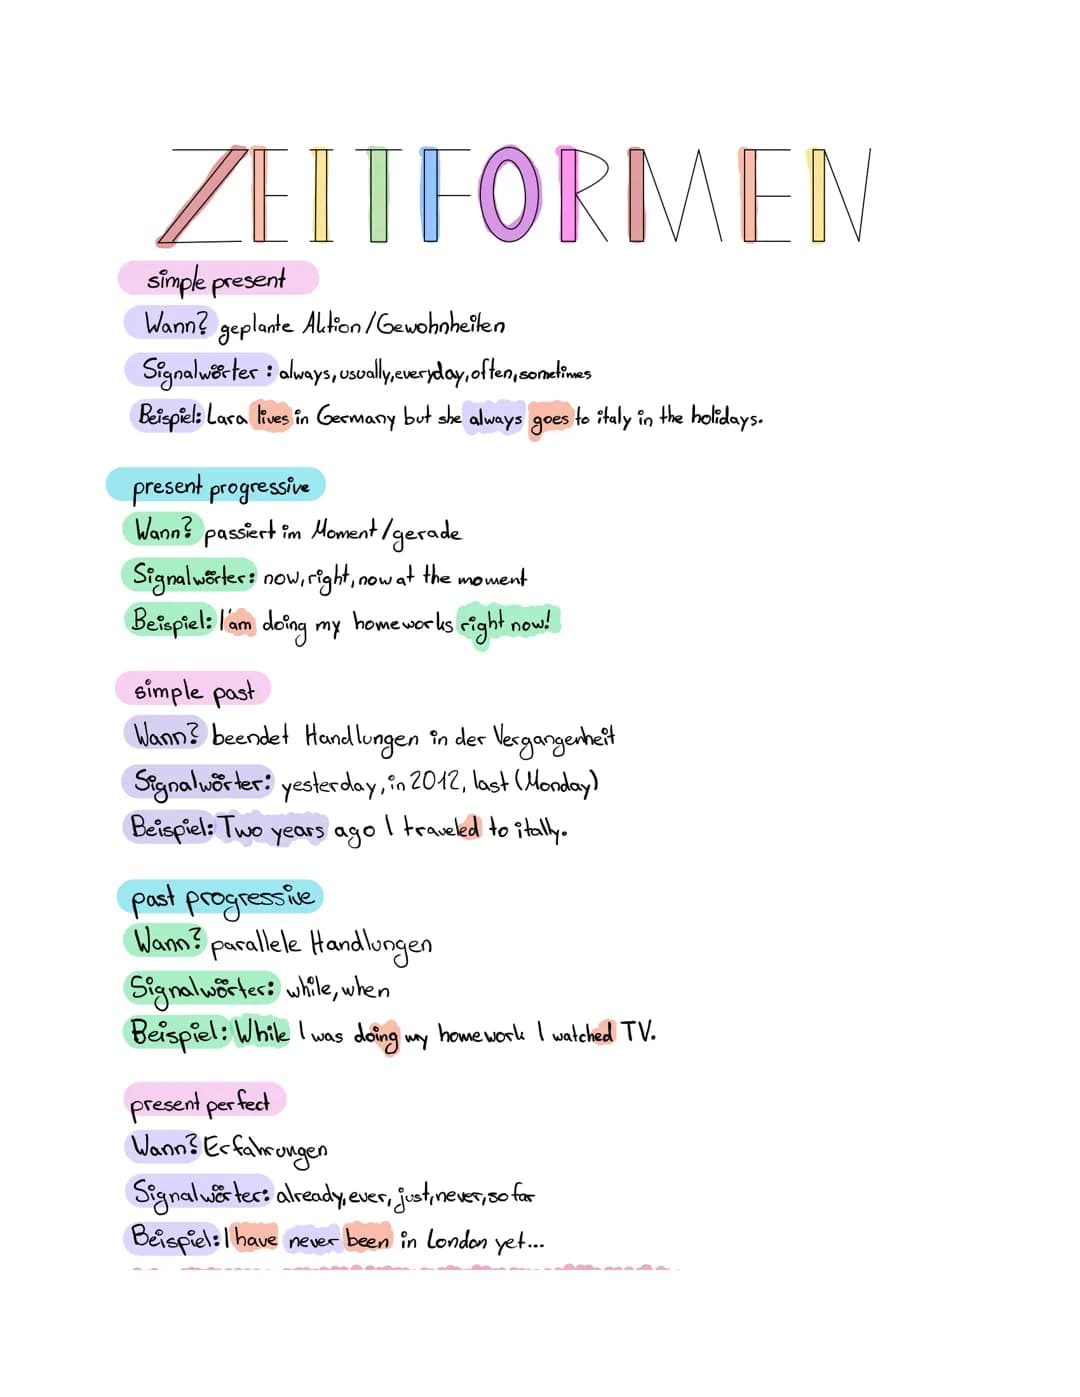 ZEITFORMEN
simple present
Wann? geplante Aktion/Gewohnheiten
Signalwörter: always, usually, everyday, often, sometimes
Beispiel: Lara lives in Germany but she always goes to italy in the holidays.
present progressive
Wann? passiert im Moment/gerade
Signalwörter: now, right, now at the moment
Beispiel: I'am doing my homeworks right now!
simple past
Wann? beendet Handlungen in der Vergangenheit
Signalwörter: yesterday, in 2012, last (Monday)
Beispiel: Two years ago I traveled to itally.
past progressive
Wann? parallele Handlungen
Signalwörter: while, when
Beispiel: While I was doing my homework I watched TV.
present perfect
Wann? Erfahrungen
Signalwörter: already, ever, just, never, so far
Beispiel: I have never been in London yet...